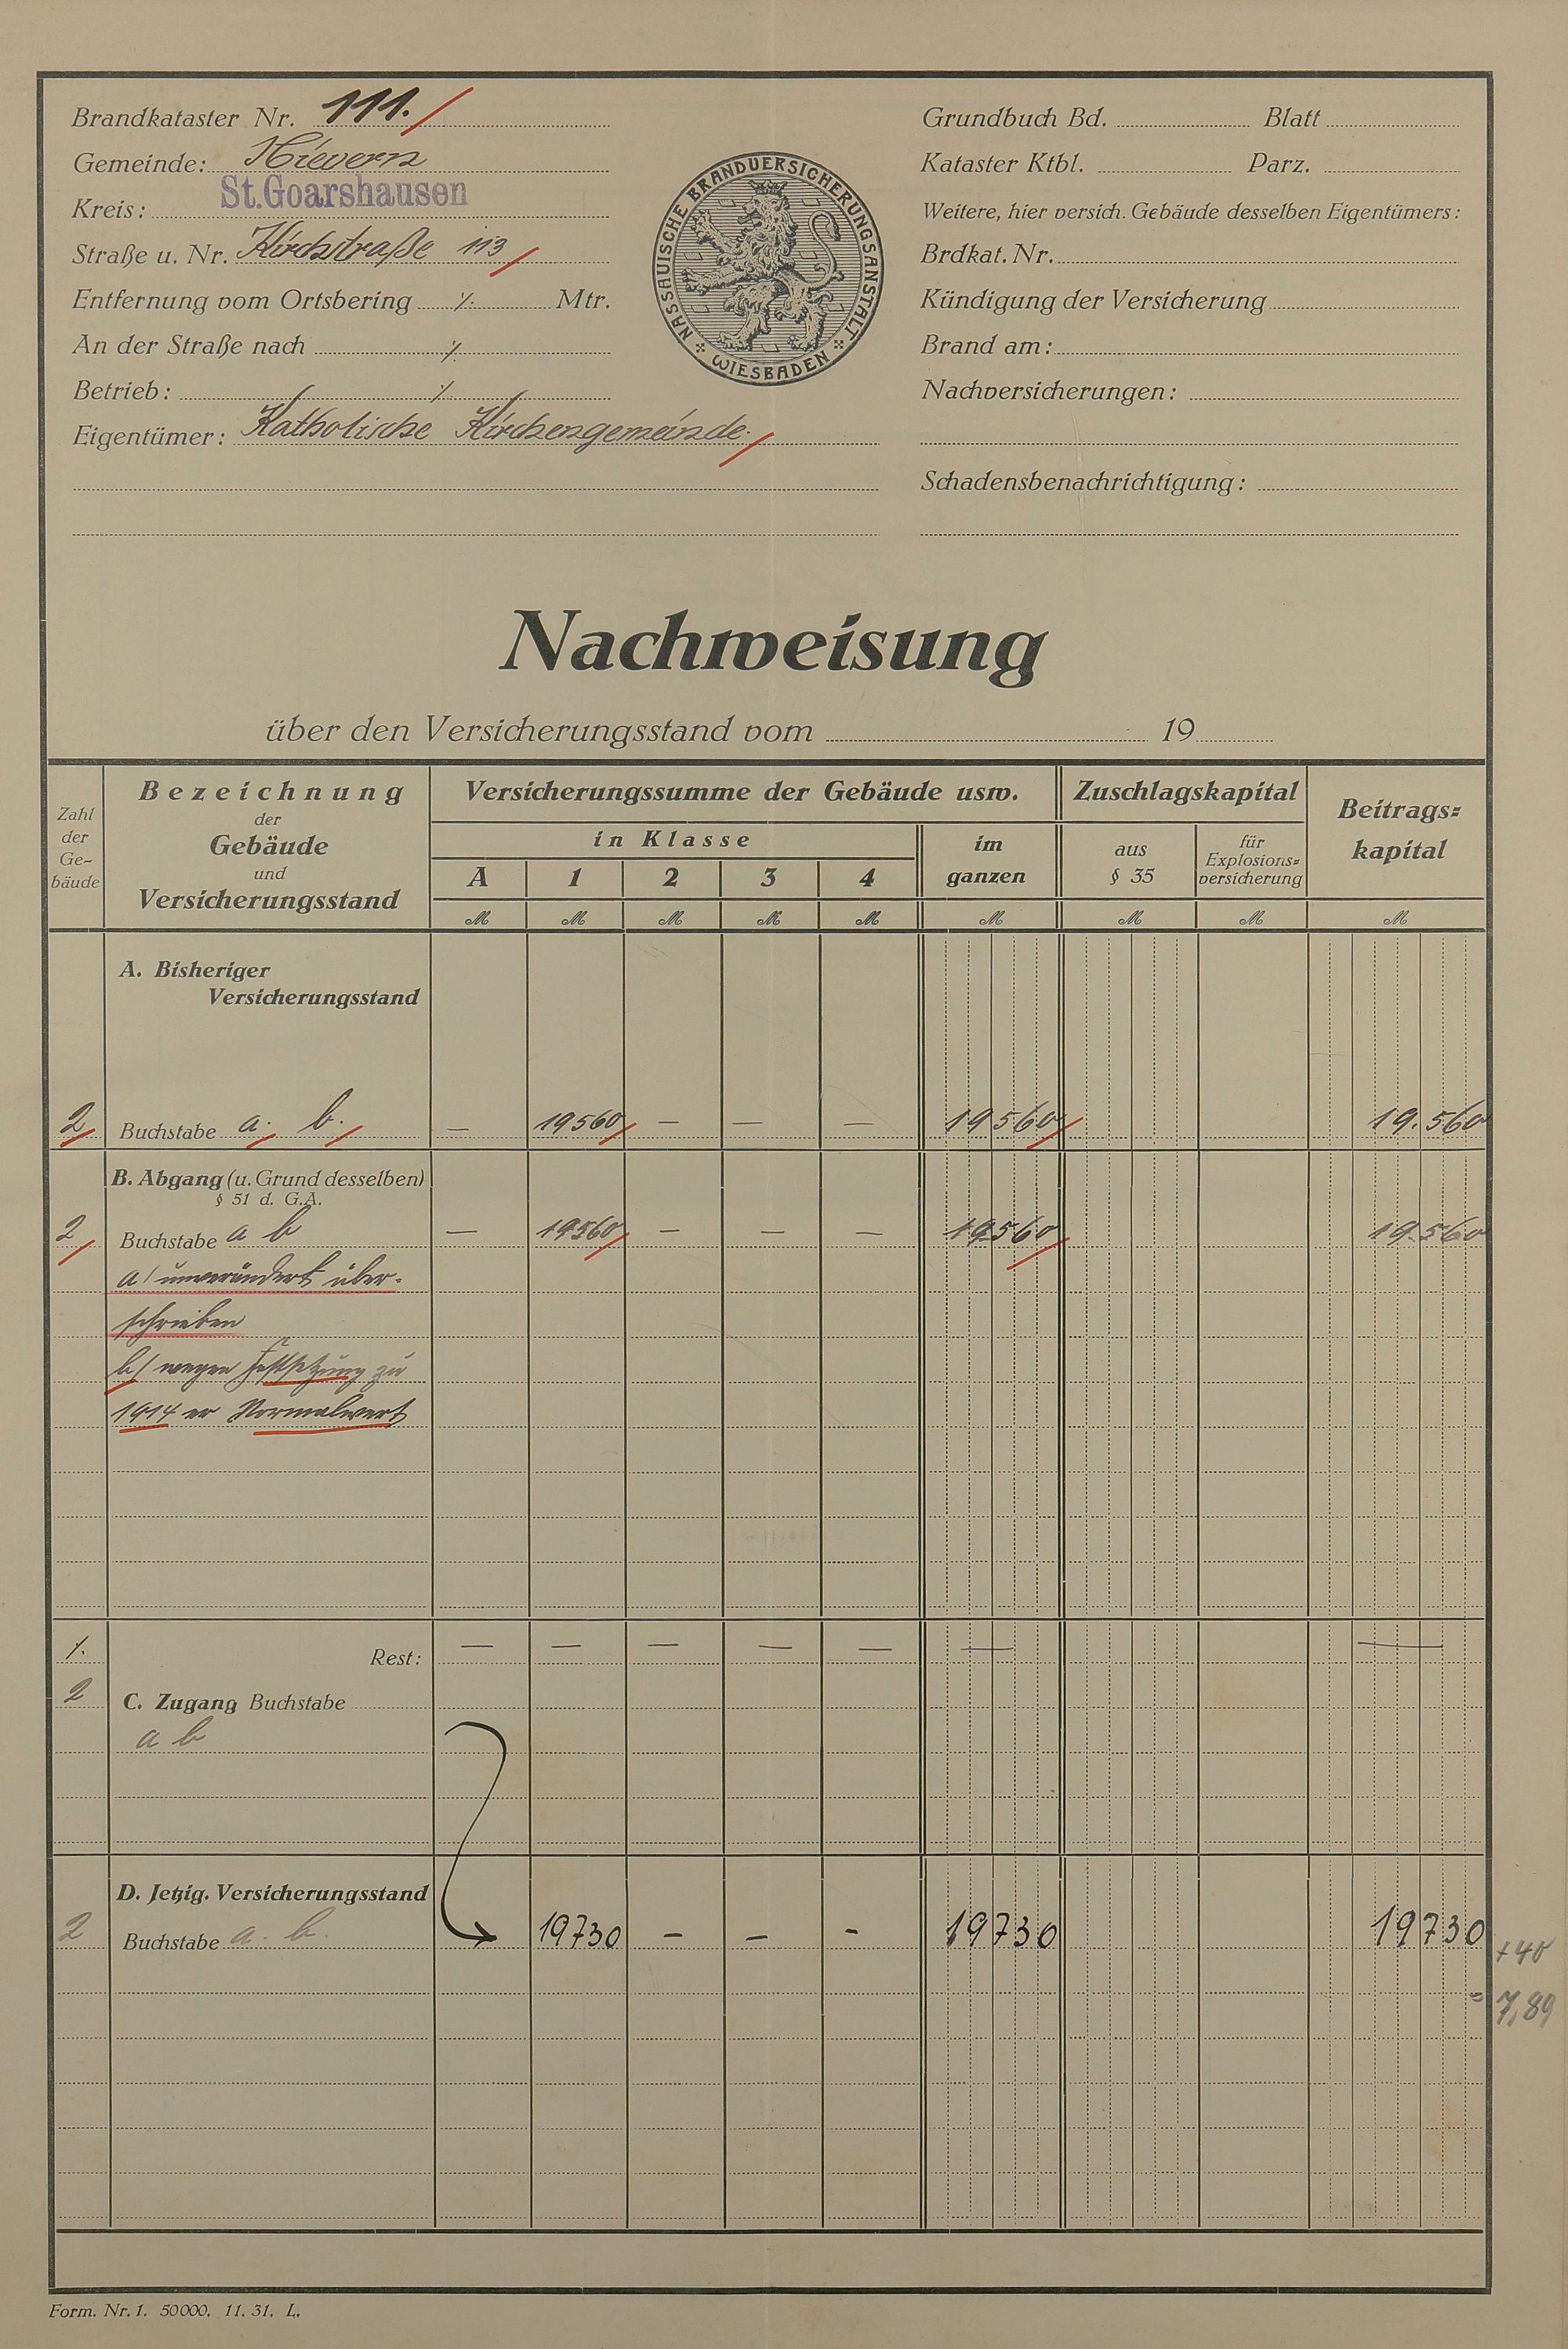 Brandkataster Nr. 111.
Gemeinde: Nievern
Kreis: St.Goarshausen
Straße u. Nr. Kirchstraße 113
Entfernung vom Ortsbering ./. Mtr.
An der Straße nach ./.
Betrieb: ./.
Eigentümer: Katholische Kirchengemeinde.
NASSAUISCHE BRANDVERSICHERUNGSANSTALT
WIESBADEN
Grundbuch Bd. Blatt
Kataster Ktbl. Parz.
Weitere, hier versich. Gebäude desselben Eigentümers:
Brdkat. Nr.
Kündigung der Versicherung
Brand am:
Nachversicherungen:
Schadensbenachrichtigung:
Nachweisung
über den Versicherungsstand vom 19
Zahl der Ge-bäude
Bezeichnung der Gebäude und Versicherungsstand
Versicherungssumme der Gebäude usw.
Zuschlagskapital
Beitrags=kapital
in Klasse
im ganzen
aus § 35
für Explosions=versicherung
A 1 2 3 4
M M M M M M M M M
A. Bisheriger
Versicherungsstand
2 Buchstabe a. b. — 19560 — — — 19560 19.560
B. Abgang (u. Grund desselben)
§ 51 d. G.A.
2 Buchstabe a b — 19560 — — — 19560 19560
a/ unverändert über-
schrieben
b/ wegen Festsetzung zu
1914 er Normalwert
./. Rest: — — — — — — —
2 C. Zugang Buchstabe
a b
D. Jetzig. Versicherungsstand
2 Buchstabe a. b. 19730 – – – 19730 19730
+40
= 7,89
Form. Nr. 1. 50000. 11. 31. L.